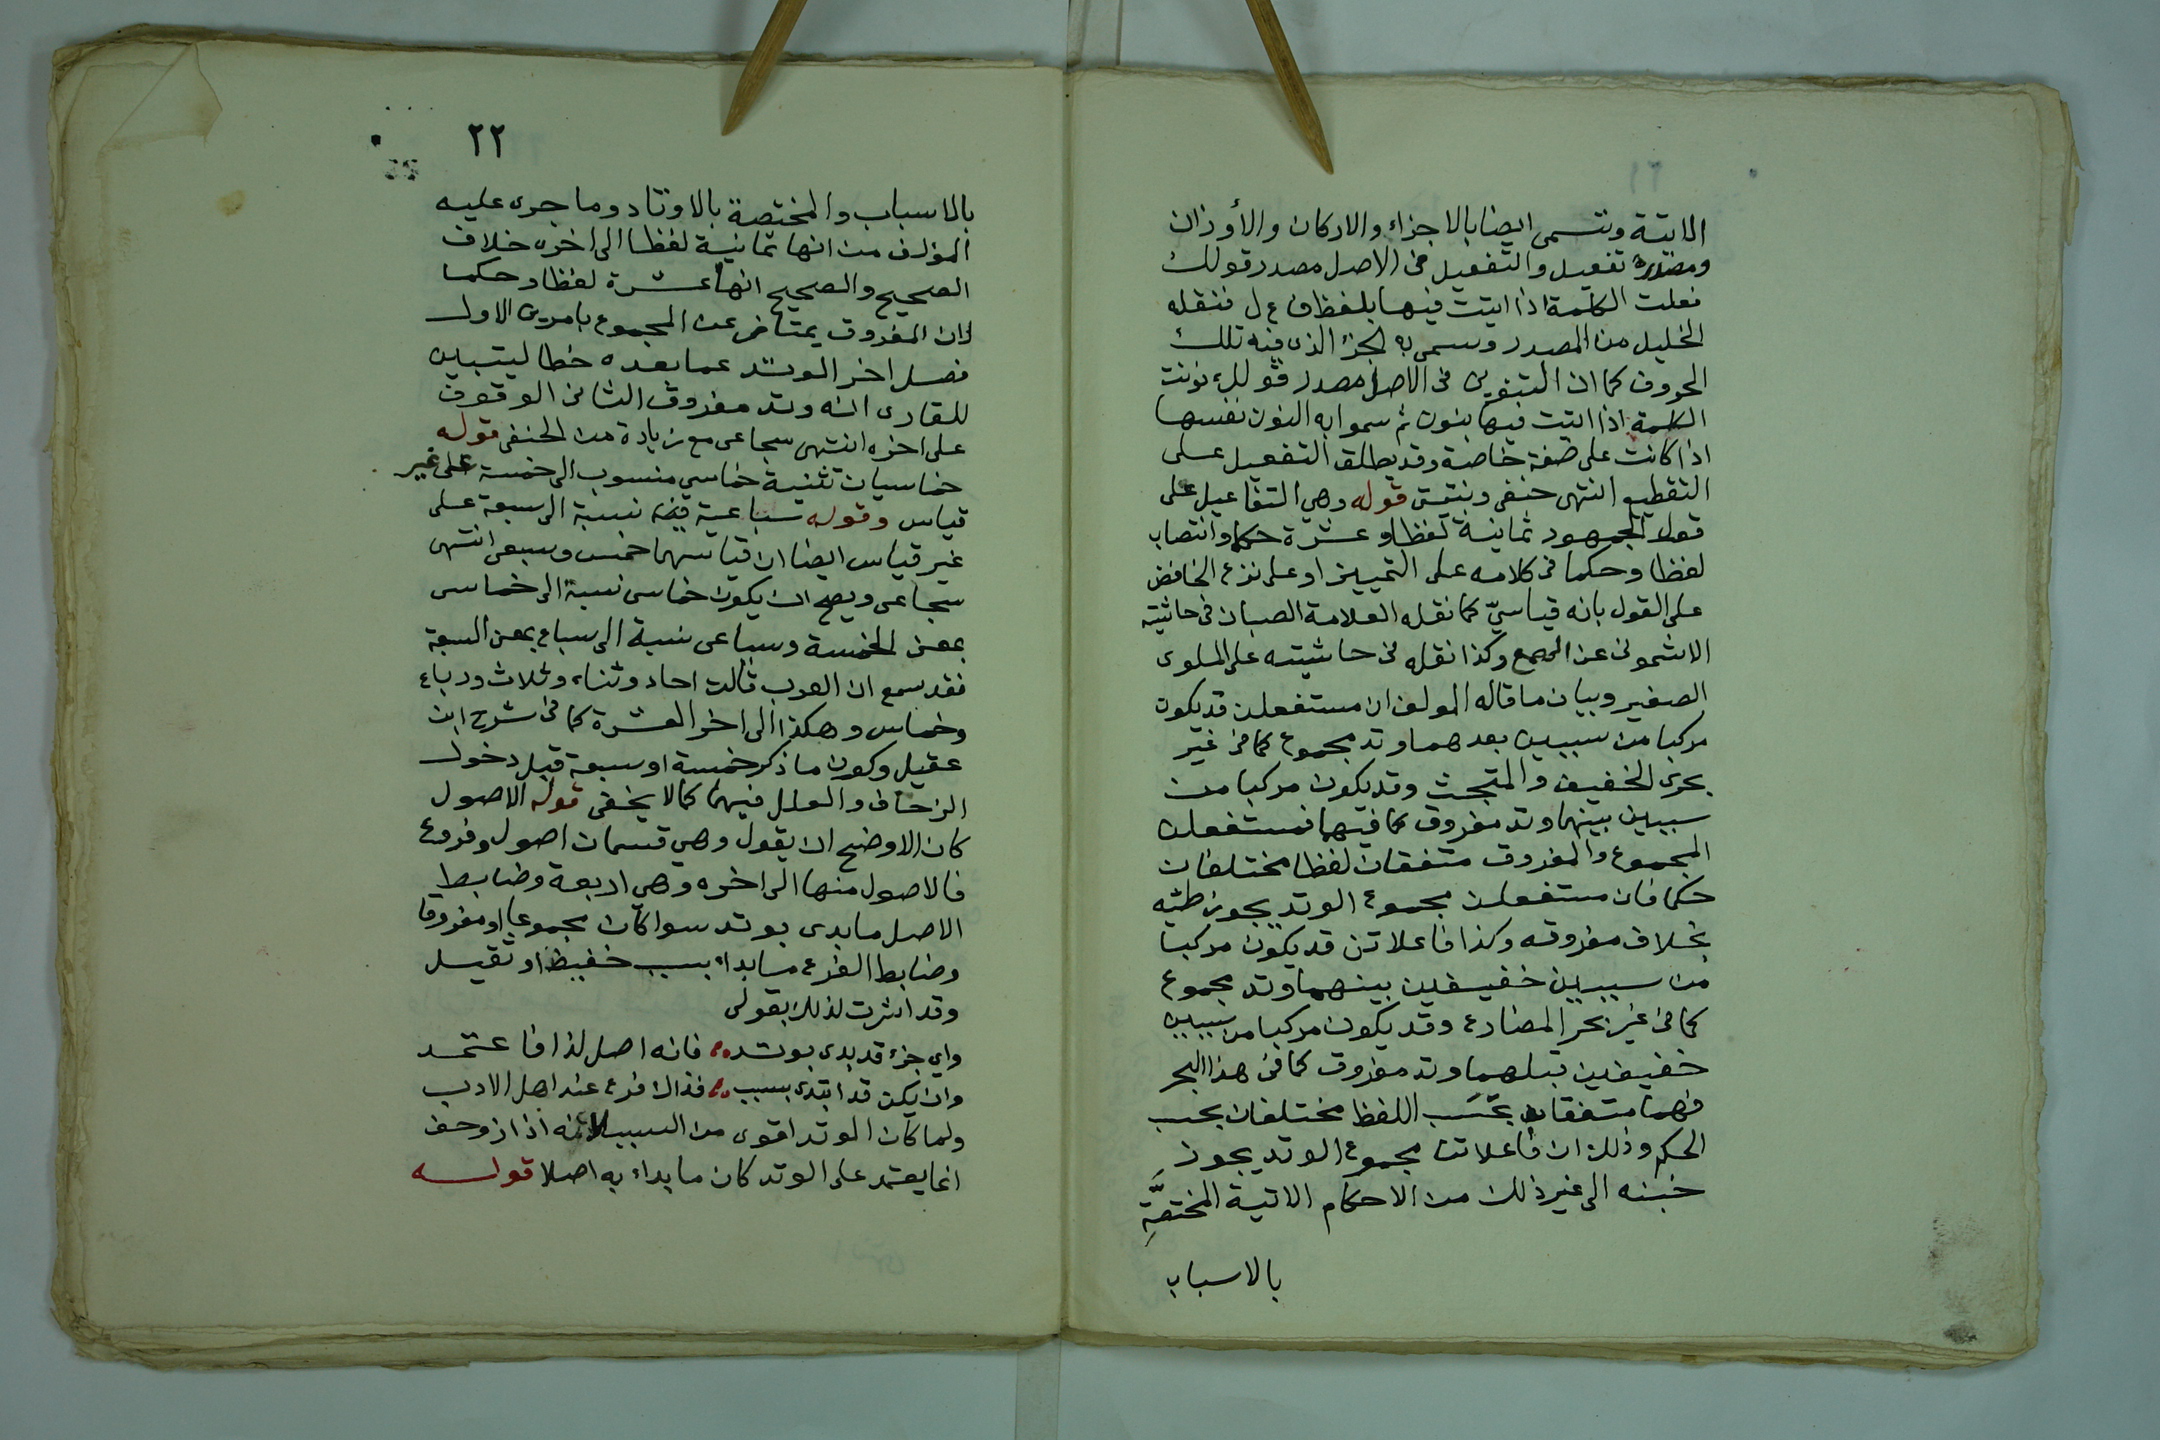 الاتية وتسمى ايضا بالاجزاء والاركان والأوزان
ومفرده تفعيل والتفعيل فى الاصل مصدر قولك
فعلت الكلمة اذا اتيت فيها بلفظ ف ع ل فنقله
الخليل من المصدر وسمى به الجزء الذى فيه تلك
الحروف كما ان التنوين فى الاصل مصدر قولك نونت
الكلمة اذا اتيت فيها بنون ثم سموا به النون نفسها
اذا كانت على صفة خاصة وقد يطلق التفعيل على
التقطيع انتهى حنفى قوله وهي التفاعيل على
قول الجمهور ثمانية لفظا وعشرة حكما وانتصاب
لفظا وحكما فى كلامه على التمييز او على نزع الخافض
على القول بانه قياسيّ كما نقله العلامة الصبان فى حاشيته
الاشمونى عن الهمع وكذا نقله فى حاشيته على الملوى
الصغير وبيان ما قاله المولف ان مستفعلن قد يكون
مركبا من سببين بعدهما وتد مجموع كما فى غير
بحرى الخفيف والمجتث وقد يكون مركبا من
سببين بينهما وتد مفروق كما فيهما فمستفعلن
المجموع والمفروق متفقان لفظا مختلفان
حكما فان مستفعلن مجموع الوتد يجوز طيّه
بخلاف مفروقه وكذا فاعلاتن قد يكون مركبا
من سببين خفيفين بينهما وتد مجموع
كما فى غير بحر المضارع وقد يكون مركبا من سببين
خفيفين قبلهما وتد مفروق كما فى هذا البحر
فهما متفقان بحَسَب اللفظ مختلفان بحسب
الحكم وذلك ان فاعلاتن مجموع الوتد يجوز
خبنه الى غير ذلك من الاحكام الاتية المختصَّةِ
بالاسباب
٢٢
بالاسباب والمختصة بالاوتاد وما جرى عليه
المؤلف من انها ثمانية لفظا الى اخره خلاف
الصحيح والصحيح انها عشرة لفظا وحكما
لان المفروق يمتاز عن المجموع بامرين الاول
فصل اخر الوتد عما بعده خطا ليتبين
للقارى انه وتد مفروق الثانى الوقوف
على اخره انتهى سجاعى مع زيادة من الحنفى قوله
خماسيان تثنية خماسي منسوب الى خمسة على غير
قياس وقوله سباعية فيه نسبة الى سبعة على
غير قياس ايضا ان قياسهما خمس وسبعى انتهى
سجاعى ويصح ان يكون خماسى نسبة الى خماسى
بمعنى الخمسة وسباعى نسبة الى سباع بمعنى السبعة
فقد سمع ان العرب قالت احاد وثناء وثلاث ورباع
وخماس وهكذا الى اخر العشرة كما فى شرح ابن
عقيل وكون ما ذكر خمسة او سبعة قبل دخول
الزحاف والعلل فيهما كما لا يخفى قوله الاصول
كان الاوضح ان يقول وهي قسمان اصول وفروع
فالاصول منها الى اخره وهي اربعة وضابط
الاصل ما بدى بوتد سوا كان مجموعا او مفروقا
وضابط الفرع ما بداء بسبب خفيف او ثقيل
وقد اشرت لذلك بقولى
واي جزء قد بدى بوتد فانه اصل لذا فاعتمد
وان يكن قد ابتدى بسبب فذاك فرع عند اهل الادب
ولما كان الوتد اقوى من السبب لانه اذا زوحف
انما يعتمد على الوتد كان ما بداء به اصلا قوله